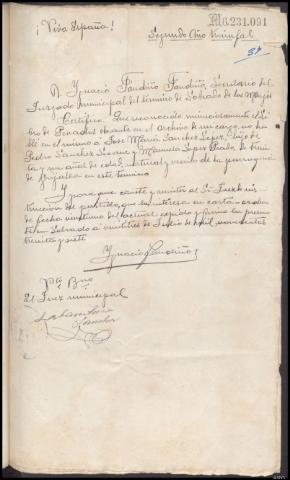 ¡Viva España!
M6.231.091
Segundo Año Triunfal
D. Ignacio Fandiño Fandiño, Secretario del
Juzgado municipal del término de Sobrado de los Monjes
Certifico: Que reconocido minuciosamente el Li-
bro de Penados obrante en el archivo de mi cargo, no ha-
llé en el mismo a José María Sánchez López, hijo de
Pedro Sánchez y Manuela López de trein-
ta y un años de edad, natural y vecino de la parroquia
de Grijalba en este término
Y para que conste y remitir al Sr. Juez ins-
tructor del partido, que lo interesa en carta-orden
de fecha veintiuno del actual, expido y firmo la presen-
te en Sobrado a veintitres de Julio de mil novecientos
treinta y siete
Ignacio Fandiño
Vto. Bno.
El Juez municipal
Sánchez